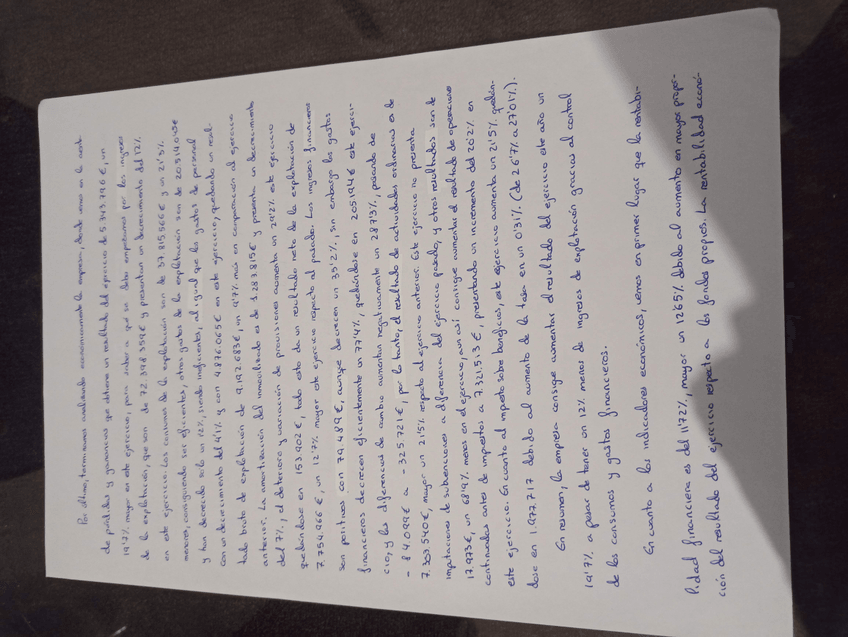 Por último, terminamos analizando económicamente la empresa, donde vemos en la cuenta
de pérdidas y ganancias que obtiene un resultado del ejercicio de 5.343.796 €, un
19'7% mayor en este ejercicio, para saber a qué se debe empezamos por los ingresos
de la explotación, que son de 72.398.359€ y presentan un decrecimiento del 12%
en este ejercicio. Los consumos de la explotación son de 37.815.566€ y un 21'5%
menores, consiguiendo ser eficientes, otros gastos de la explotación son de 20.514.045€
y han decrecido solo un 12%, siendo ineficientes, al igual que los gastos de personal
con un decrecimiento del 4'1% y con 4.876.065€ en este ejercicio, quedando un resul-
tado bruto de explotación de 9.192.683€, un 9'7% más en comparación al ejercicio
anterior. La amortización del inmovilizado es de 1.283.815€ y presenta un decrecimiento
del 7%, el deterioro y variación de provisiones aumenta un 29'2% este ejercicio
quedándose en 153.902 €, todo esto da un resultado neto de la explotación de
7.754.966 €, un 12'7% mayor este ejercicio respecto al pasado. Los ingresos financieros
son positivos con 79.489€, aunque decrecen un 35'2%, sin embargo los gastos
financieros decrecen eficientemente un 77'4%, quedándose en 205.194€ este ejerci-
cio, y las diferencias de cambio aumentan negativamente un 287'3%, pasando de
- 84.099€ a - 325.721€, por lo tanto, el resultado de actividades ordinarias es de
7.303.540€, mayor un 21'5% respecto al ejercicio anterior. Este ejercicio no presenta
imputaciones de subvenciones a diferencia del ejercicio pasado, y otros resultados son de
17.973€, un 68'9% menos en el ejercicio, aun así consigue aumentar el resultado de operaciones
continuadas antes de impuestos a 7.321.513 €, presentando un incremento del 20'2% en
este ejercicio. En cuanto al impuesto sobre beneficios, este ejercicio aumenta un 21'5% quedán-
dose en 1.977.717 debido al aumento de la tasa en un 0'31% (de 26'7% a 27'01%).
En resumen, la empresa consigue aumentar el resultado del ejercicio este año un
19'7% a pesar de tener un 12% menos de ingresos de explotación gracias al control
de los consumos y gastos financieros.
En cuanto a los indicadores económicos, vemos en primer lugar que la rentabi-
lidad financiera es del 11'72%, mayor un 12'65% debido al aumento en mayor propor-
ción del resultado del ejercicio respecto a los fondos propios. La rentabilidad econó-